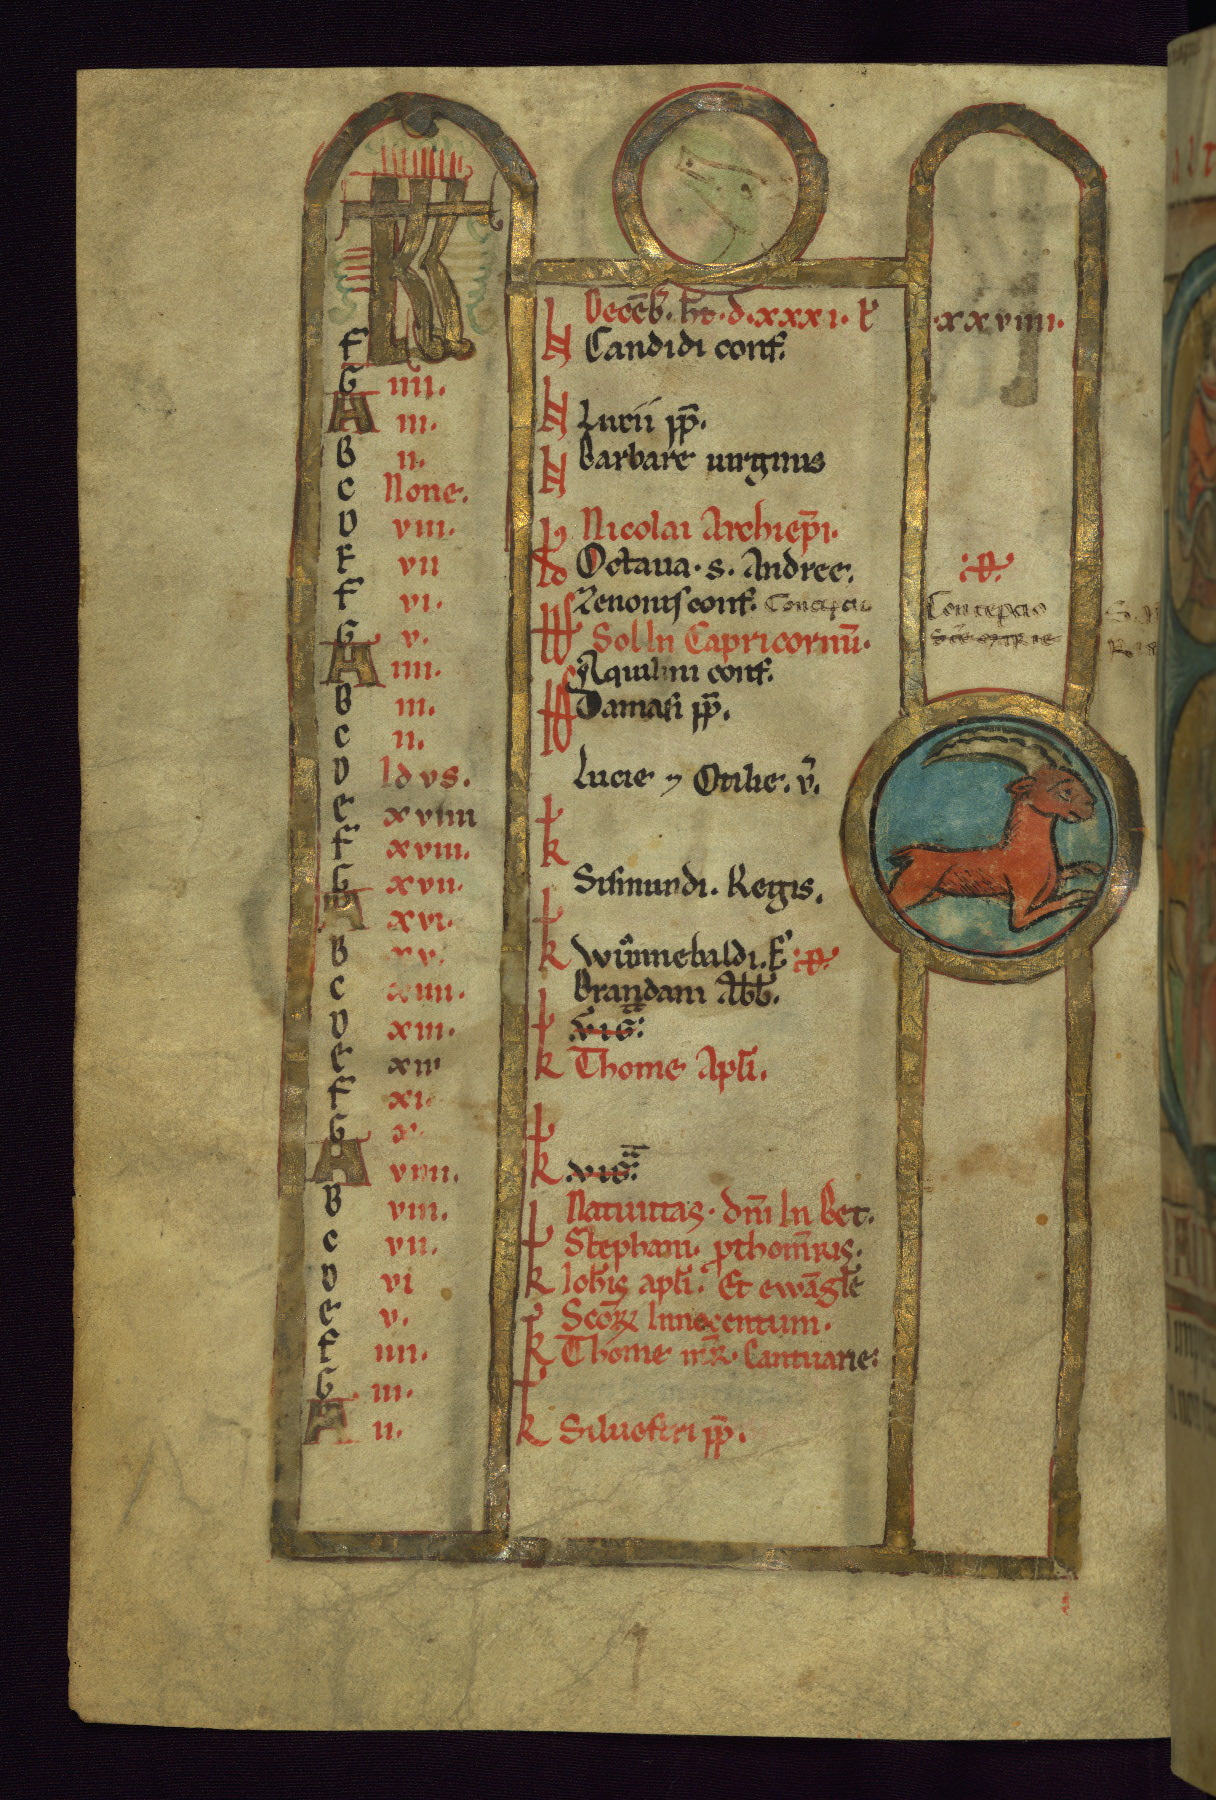 KL Decēb. ht. d. xxxi. k xxviiii.
F Candidi conf.
G iiii.
A iii. Lucii pp̄.
B ii. Barbare uirginis
C None.
D viii. Nicolai Archiep̄i.
E vii Octaua. s. Andree.
F vi. Zenonis conf. Concepcio Concepcio
G v. Sol In Capricornū.
A iiii. Aquilini conf.
B iii. Damasi pp̄.
C ii.
D Idvs. Lucie 7 Otilie. v̄.
E xviiii
F xviii. k
G xvii. Sismundi. Regis.
A xvi.
B xv. k Wunnebaldi. E
C xiiii. Brandani Abb.
D xiii. vig̅:
E xii k Thome Apl̄i.
F xi.
G x.
A viiii. k vig̅:
B viii. Natiuitas. dn̄i In Bet.
C vii. Stephani. pthom̄ris.
D vi k Ioh̄is apl̄i. Et ewāgl̄e
E v. Scōrꝝ Innocentum.
F iiii. k Thome m̄r. Cantuarie:
G iii.
A ii. k Siluestri pp̄.